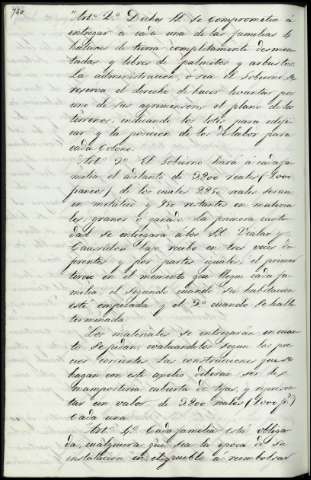 "Art.º 2.º Dichos SS. se comprometen á
entregar á cada una de las familias 10
hectáreas de tierra completamente desmon-
tadas y libres de palmitos y arbustos.
La administracion, ó sea el Gobierno, se
reserva el derecho de hacer levantar por
uno de sus agrimensores el plano de los
terrenos, indicando los lotes para edifi-
car y la posicion de los de labor para
cada Colono.
Art. 3.º El Gobierno hará á cada fa-
milia el adelanto de 3800 reales (1.000
francos) de los cuales 2850 reales serán
en metálico y 950 restantes en materia-
les, granos ó ganado. La primera canti-
dad se entregará á los SS. Vialar y
Caussidon bajo recibo en tres veces di-
ferentes y por partes iguales; el primer
tercio en el momento que llegue cada fa-
milia, el segundo cuando su habitacion
esté empezada y el 3.º cuando se halle
terminada.
Los materiales se entregarán en cuan-
to se pidan, evaluandoles segun los pre-
cios corrientes. Las construcciones que se
hagan con este ausilio deberán ser de
mamposteria cubierta de tejas, y represen-
tar un valor de 3800 reales (1.000 f.s)
cada una.
Art. 4.º Cada familia está obliga-
da, cualquiera que sea la época de su
instalacion en el pueblo á reembolsar